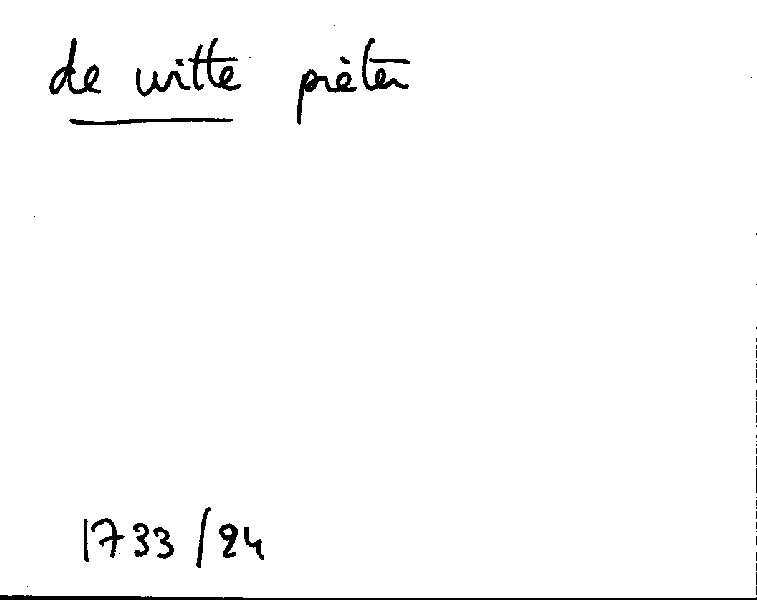 de witte pièter
1733/24